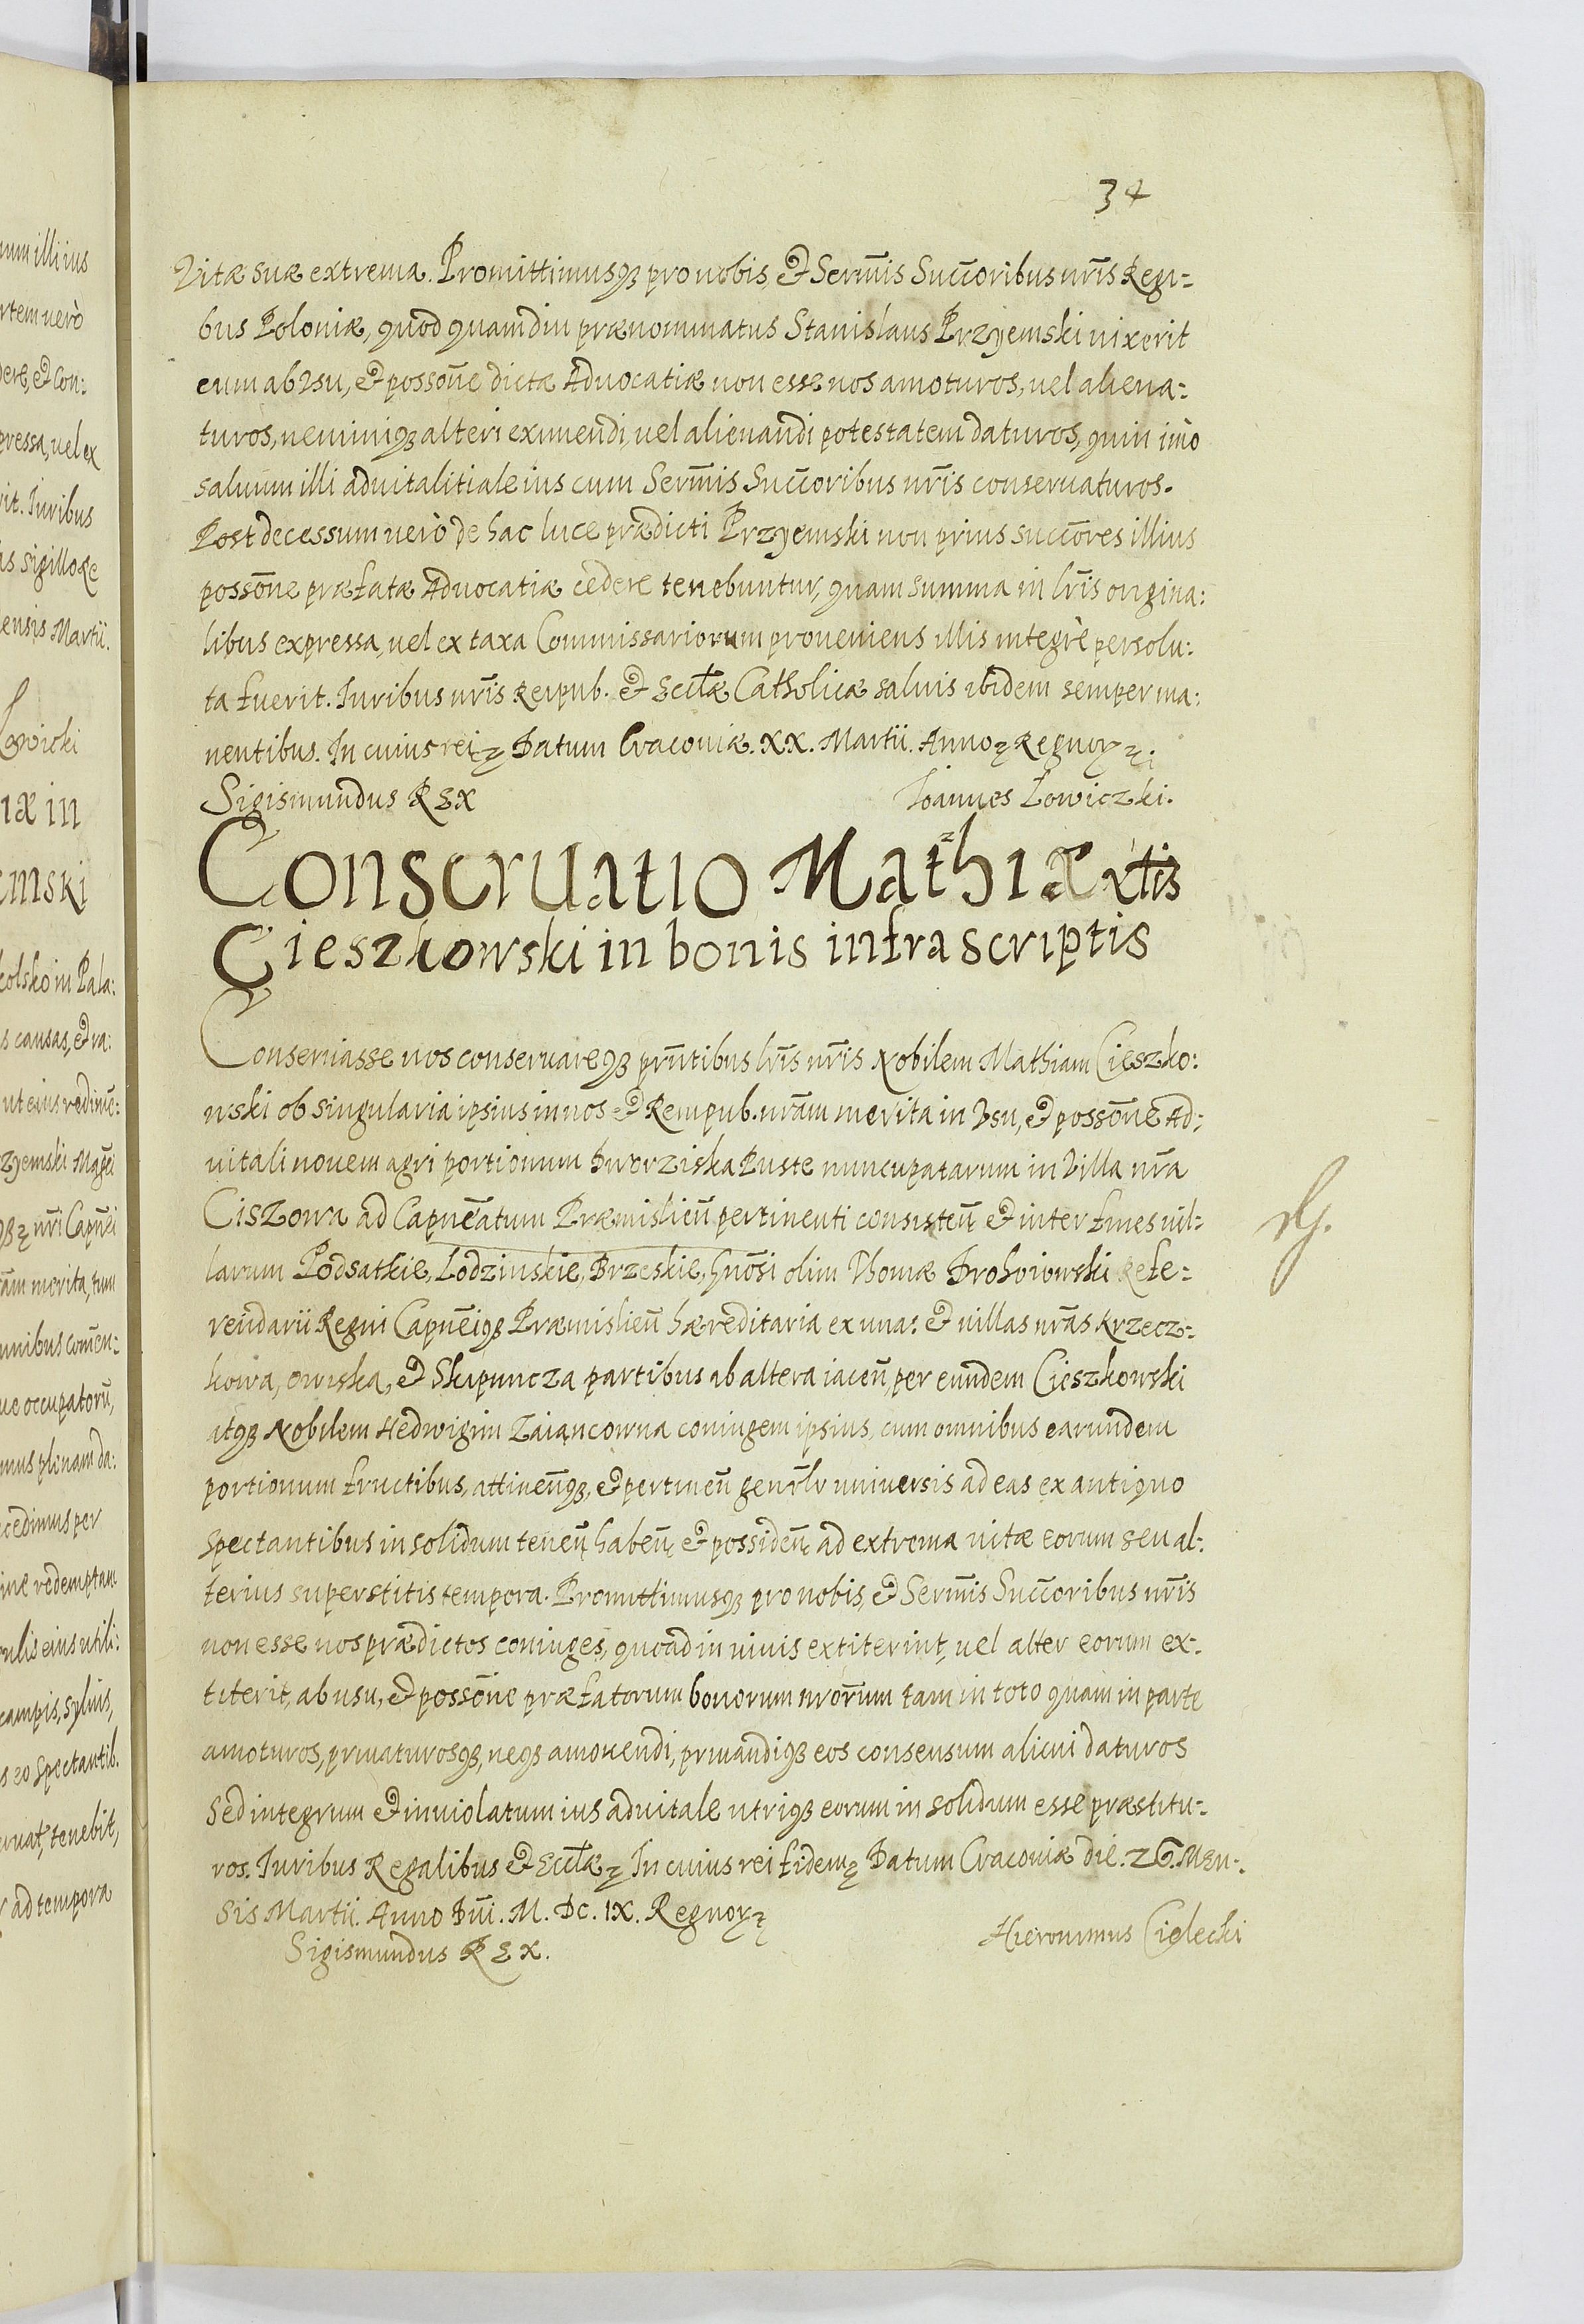 34
Vitæ suæ extrema. Promittimusqꝫ pro nobis, et Serm̄is Succ̄oribus nr̄is Regi-
bus Poloniæ, quod quamdiu prænominatus Stanislaus Przyemski uixerit
eum ab Vsu, et posson̄e dictæ Aduocatiæ non esse nos amoturos, uel aliena:
turos, neminiqꝫ alteri eximendi, uel alienandi potestatem daturos, quin imò
saluum illi aduitalitiale ius cum Serm̄is Succ̄oribus nr̄is conseruaturos.
Post decessum uerò de hac luce prædicti Przyemski non prius succ̄ores illius
possōne præfatæ Aduocatiæ cedere tenebuntur, quam summa in lr̄is origina:
libus expressa, uel ex taxa Commissariorum proueniens illis integrè persolu:
ta fuerit. Iuribus nr̄is Reipub. et Eccl̄æ Catholicæ saluis ibidem semper ma:
nentibus. In cuius rei ꝫ Datum Cracoviæ. XX. Martii. Anno ꝫ Regnoꝝ ꝫ.
Sigismundus REX
Ioannes Lowiczki.
Conseruatio Mathiæ
Cieszkowski in bonis infrascriptis
Conseruasse nos conseruareqꝫ prn̄tibus lr̄is nr̄is Nobilem Mathiam Cieszko:
wski ob singularia ipsius in nos et Rempub. nr̄am merita in Vsu, et possōne Ad:
uitali nouem agri portionum Dworziska Puste nuncupatarum in Villa nr̄a
Ciszowa ad Capnēatum Præmislien̄ pertinenti consisten̄ et inter fines uil:
larum Podsatkie, Lodzinskie, Brzeskie, Gnōsi olim Thomæ Drohoiowski Refe:
rendarii Regni Capnēiqꝫ Præmislien̄ hæreditaria ex una: et uillas nr̄as Krzecz:
kowa, Owiska, et Skupuncza partibus ab altera iacen̄ per eundem Cieszkowski
atqꝫ Nobilem Hedwigim Zaiancowna coniugem ipsius, cum omnibus earundem
portionum fructibus, attinen̄qꝫ, et pertinen̄ genr̄lr uniuersis ad eas ex antiquo
spectantibus in solidum tenen̄ haben̄ et possiden̄ ad extrema uitæ eorum seu al:
terius superstitis tempora. Promittimusqꝫ pro nobis, et Serm̄is Succ̄oribus nr̄is
non esse nos prædictos coniuges, quoad in uiuis extiterint, uel alter eorum ex:
titerit, ab usu, et possōne præfatorum bonorum nrōrum tam in toto quam in parte
amoturos, priuaturosqꝫ, neqꝫ amouendi, priuandiqꝫ eos consensum alicui daturos
sed integrum et inuiolatum ius aduitale utriqꝫ eorum in solidum esse præstitu-
ros. Iuribus Regalibus et Eccl̄æ ꝫ In cuius rei fidem ꝫ Datum Cracoviæ die. 26. Men-
sis Martii. Anno Dn̄i. M. DC. IX. Regnoꝝ ꝫ
Sigismundus REX.
Hieronimus Cielecki